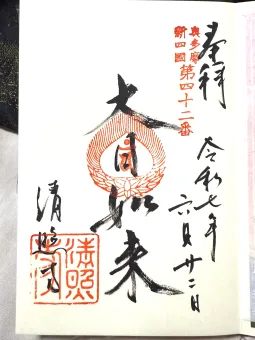 奉拝
令和七年
六月廿二日
奥多摩
新四國
第四十二番
大日如来
清照寺
清照